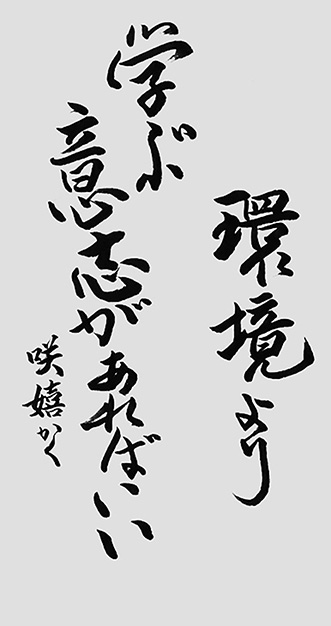 環境より
学ぶ
意志があればいい
咲嬉かく